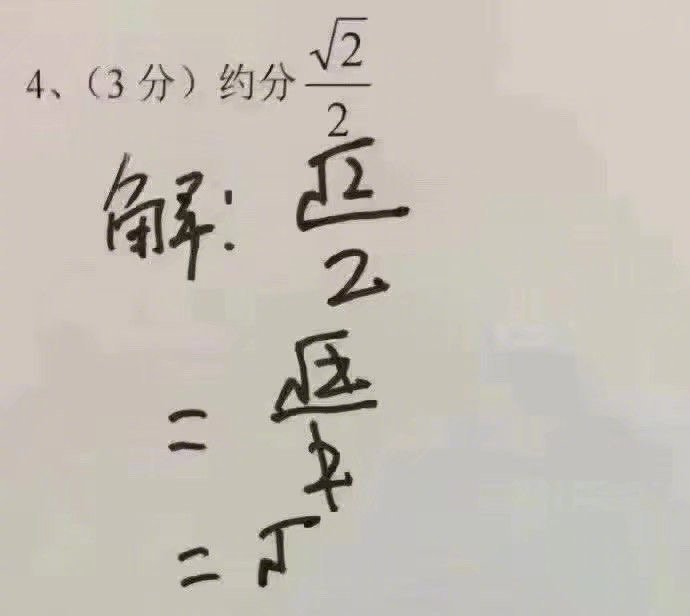 4、（3 分）约分 √2/2
解： √2/2
= √2/2
= √